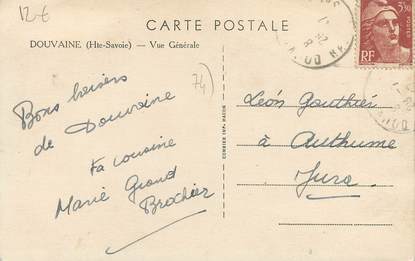 12 €
CARTE POSTALE
DOUVAINE (Hte-Savoie) — Vue Générale
3f50
POSTES
RF
74)
Bons baisers
de Douvaine
Ta cousine
Marie Grand
Brochier
Léon Gauthier
à Authume
Jura